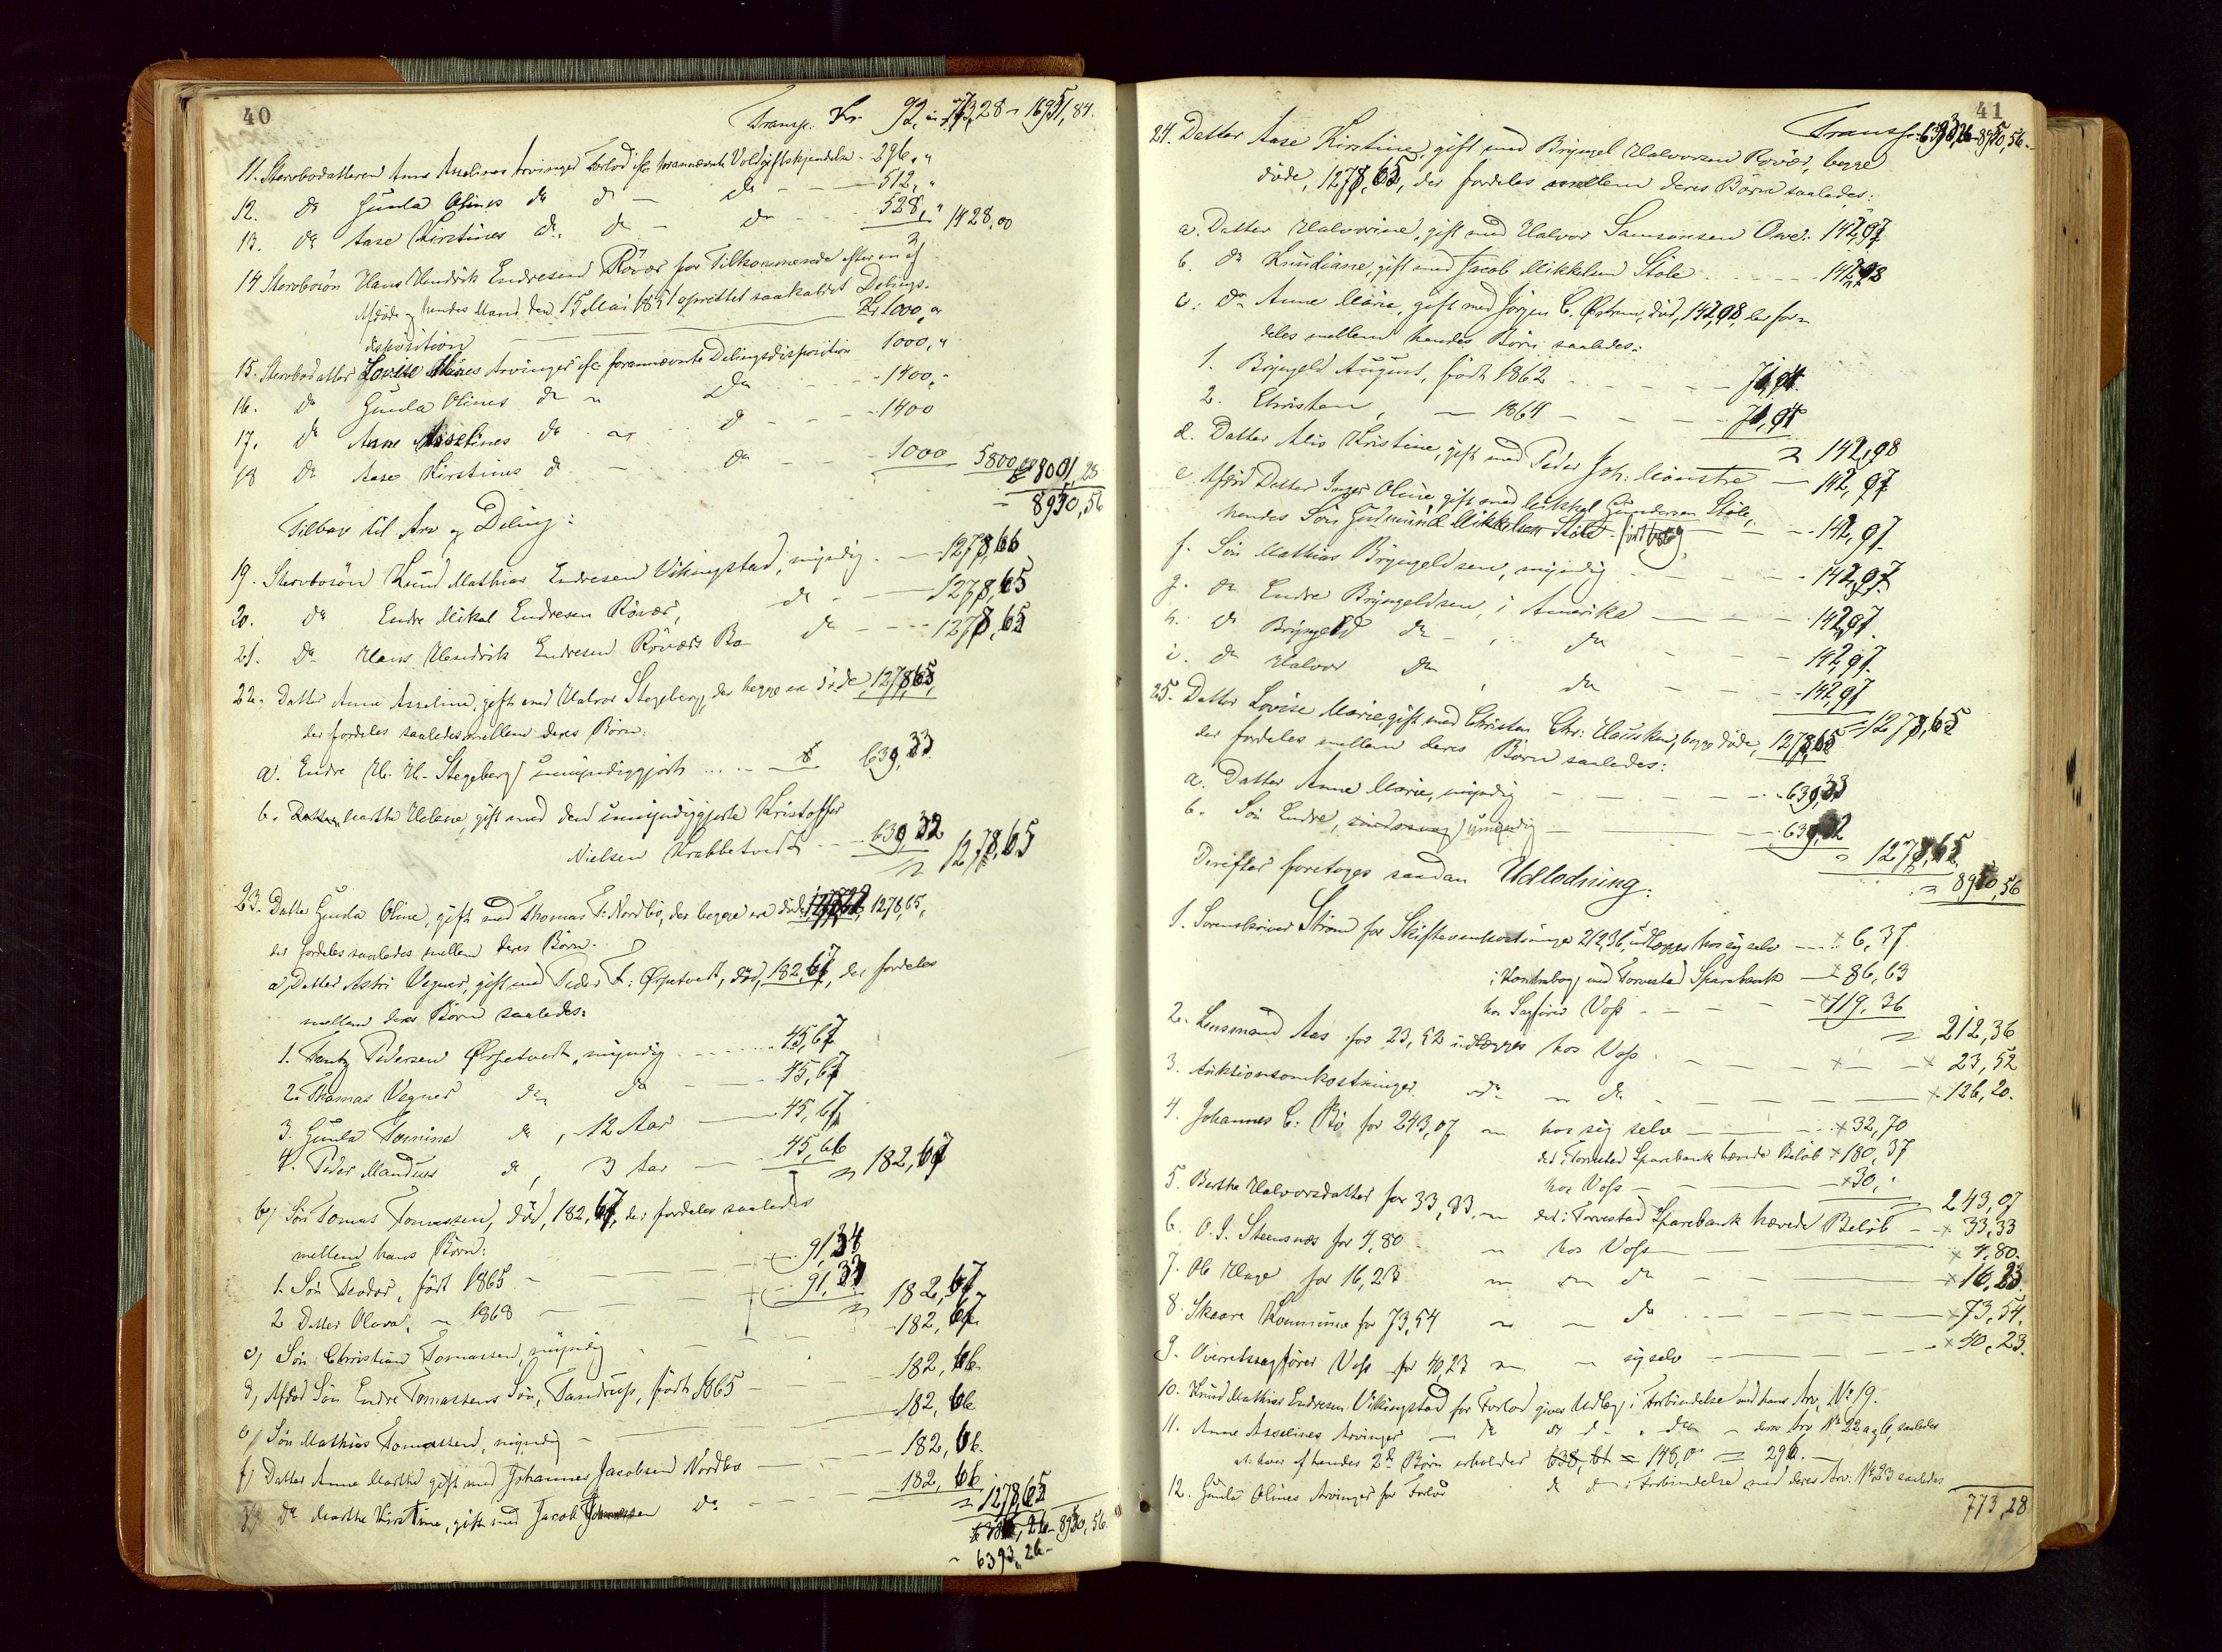 40
Transp. Kr. 92, „ 773,28 – 16951,84.
11. Stervbodatteren Anne Asselines Arvinger Forlod ifr. forannævnte Voldgiftskjendelse - 296, „
12. do Gunla Olines do do — do - - - 512, „
13. do Aase Kirstines do do - do - - - 528, „ 1428,00
14 Stervbosøn Hans Hendrik Endresen Rövær for Tilkommende efter en af
Afdøde og hendes Mand den 15 Mai 1851 oprettet saakaldet Delings-
disposition — Kr 1000, „
15. Stervbodatter Lovise Maries Arvinger ifr. forannævnte Delingsdisposition 1000, „
16. do Gunla Olines do „ do - - 1400, -
17. do Anne Asselines do - do - - 1400
18 do Aase Kirstines do - do - - 1000 5800,00 8001,28
- 8950,56
Tilbage til Arv og Deling:
19. Stervbosøn Knud Mathias Endresen Vikingstad, myndig - 1278,66
20. do Endre Mikal Endresen Rövær, do - - 1278,65
21. do Hans Hendrik Endresen Röværs Bo do - - 1278,65
22. Datter Anne Asseline, gift med Halvor Stegeberg, der begge er døde, 1278,65,
der fordeles saaledes mellem deres Børn:
a. Endre H. H. Stegeberg, umyndiggjort ... - 639,33.
b. Datter Marthe Helene, gift med den umyndiggjorte Kristoffer
Nielsen Krabbetvedt - - 639,32
= 1278,65
23. Datter Gunla Oline, gift med Thomas T. Nordbø, der begge er døde, 1278,65,
der fordeles saaledes mellem deres Børn.
a) Datter Astri Vegner, gift med Peder T. Ørpetvedt, død, 182,67, der fordeles
mellem deres Børn saaledes:
1. Pedersen Ørpetvedt, myndig - - - 45,67
2. Thomas Vegner do do - - 45,67
3. Gunla Tomine do, 12 Aar - - 45,67
4. Peder Mandius do, 3 Aar - - 45,66 = 182,67
b) Søn Tomas Tomassen, død, 182,67, der fordeles saaledes
mellem hans Børn:
1. Søn Teodor, født 1865 - - - 91,34
2 Datter Olava, „ 1868 - - - 91,33 = 182,67
c) Søn Christian Tomassen, myndig - - 182,67
d) Afdød Søn Endre Tomassens Søn, født 1865 - - 182,66
e) Søn Mathias Tomassen, myndig - - 182,66
f) Datter Anne Marthe gift med Johannes Jacobsen Nordbø - - 182,66.
g) do Marthe Kirstine, gift med Jacob Johannessen do - - 182,66
= 1278,65
8950,56.
- 6393,26 -
41
Transp. 6393,26 - 8950,56 -
24. Datter Aase Kirstine, gift med Bryngel Halvorsen Rövær, begge
døde, 1278,65, der fordeles mellem deres Børn saaledes:
a. Datter Halvorine, gift med Halvor Samsonsen Owe. 142,97
b. do Knudiane, gift med Jacob Mikkelsen Stole - - - 142,98
c. do Anne Marie, gift med Jørgen C. Østrem, død, 142,98, der for-
deles mellem hendes Børn saaledes:
1. Bryngeld August, født 1862 - - - 71,94
2. Christen, — 1864 - - - 71,94
= 142,98
d. Datter Alis Kristine, gift med Peder Joh. Mønstre — 142,97
e. Afdød Datter Inger Oline, gift med Mikkel Gundersen Stole,
hendes Søn Gudmund Mikkelsen Stole - - - 142,97
f. Søn Mathias Bryngeldsen, myndig - - - 142,97
g. do Endre Bryngeldsen, i Amerika - - - 142,97
h. do Bryngeld do - , do - - 142,97
i. do Halvor do , do - - 142,97
= 1278,65
25. Datter Lovise Marie, gift med Christen Chr. Hausken, begge døde, 1278,65
der fordeles mellem deres Børn saaledes:
a. Datter Anne Marie, myndig - - - 639,33
b. Søn Endre, umyndig - - - 639,32
= 1278,65
= 8950,56
Derefter foretages saadan Udlodning:
1. Sorenskriver Strøm for Skifteomkostninger 212,36, udlægges hos sig selv - - × 6,37.
i Kontrabog med Torvestad Sparebank — × 86,63
hos Sagfører Voss - - - × 119,36
= 212,36
2. Lensmand Aas for 23,52 udlægges hos Voss - - - × 23,52
3. Auktionsomkostninger „ do „ do - - - × 126,20.
4. Johannes C. Bö for 243,07 „ hos sig selv - - × 32,70
det i Torvestad Sparebank hævede Beløb × 180,37
hos Voss - - - × 30, „
= 243,07
5. Berthe Halvorsdatter for 33,33, „ det i Torvestad Sparebank hævede Beløb - × 33,33
6. O. J. Steensnæs for 4,80 „ hos Voss - - - × 4,80.
7. Ole Hage for 16,23 „ „ do - - - × 16,23.
8. Skaare Kommune for 73,54 „ „ do - - - × 73,54.
9. Overretssagfører Voss for 40,23 „ „ sig selv - - - × 40,23.
10. Knud Mathias Endresen Vikingstad for Forlod gives Udlæg i Forbindelse med hans Arv, No 19.
11. Anne Asselines Arvinger — do do do „ do - deres Arv No 22 a og b, saaledes
at hver af hendes 2de Børn erholder 148,00 = 296. -
12. Gunla Olines Arvinger for Forlod do do i Forbindelse med deres Arv: No 23 saaledes
773,28